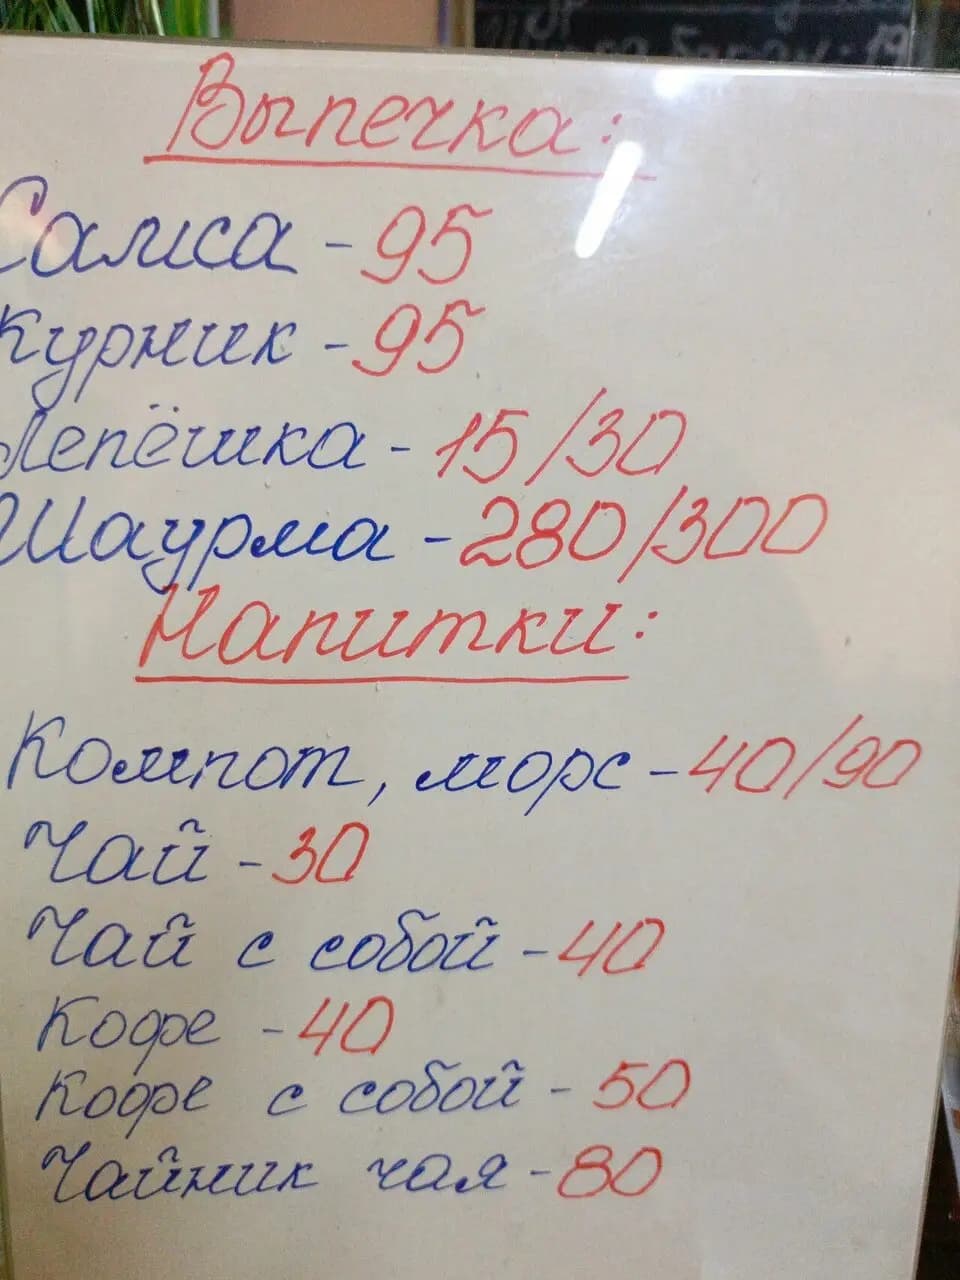 Выпечка:
Самса - 95
Курник - 95
Лепёшка - 15/30
Шаурма - 280/300
Напитки:
Компот, морс - 40/90
Чай - 30
Чай с собой - 40
Кофе - 40
Кофе с собой - 50
Чайник чая - 80